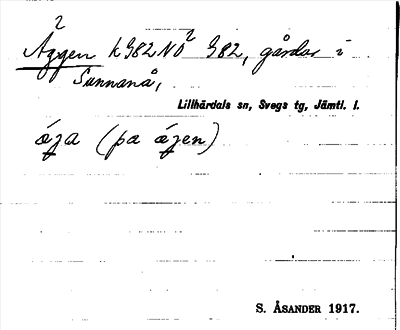 2
Äggen k 982 NO² 982, gårdar i
Sunnanå,
Lillhärdals sn, Svegs tg, Jämtl. l.
ǽga (pa ǽgen)
S. ÅSANDER 1917.